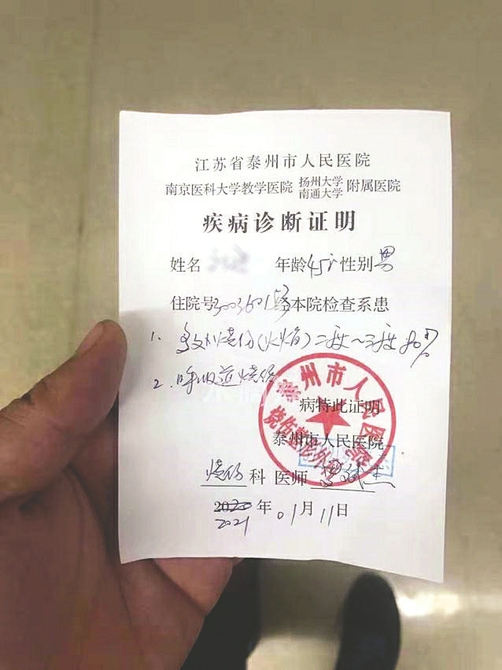 江苏省泰州市人民医院
南京医科大学教学医院 扬州大学 南通大学 附属医院
疾病诊断证明
姓名 年龄45岁性别男
住院号 经本院检查系患
1、多处烧伤(火焰)二度~三度80%
2、呼吸道烧伤
病特此证明
泰州市人民医院
烧伤科 医师
2020年01月11日
2021
泰州市人民医院
烧伤整形外科